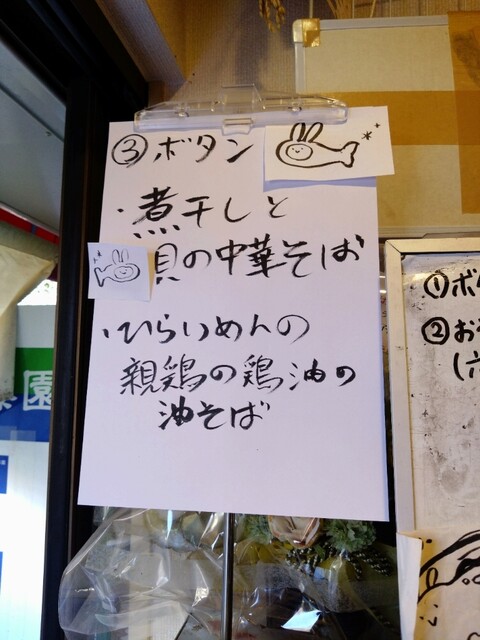 ③ボタン
・煮干しと
貝の中華そば
・ひらいめんの
親鶏の鶏油の
油そば
①ボ
②お
(六
園